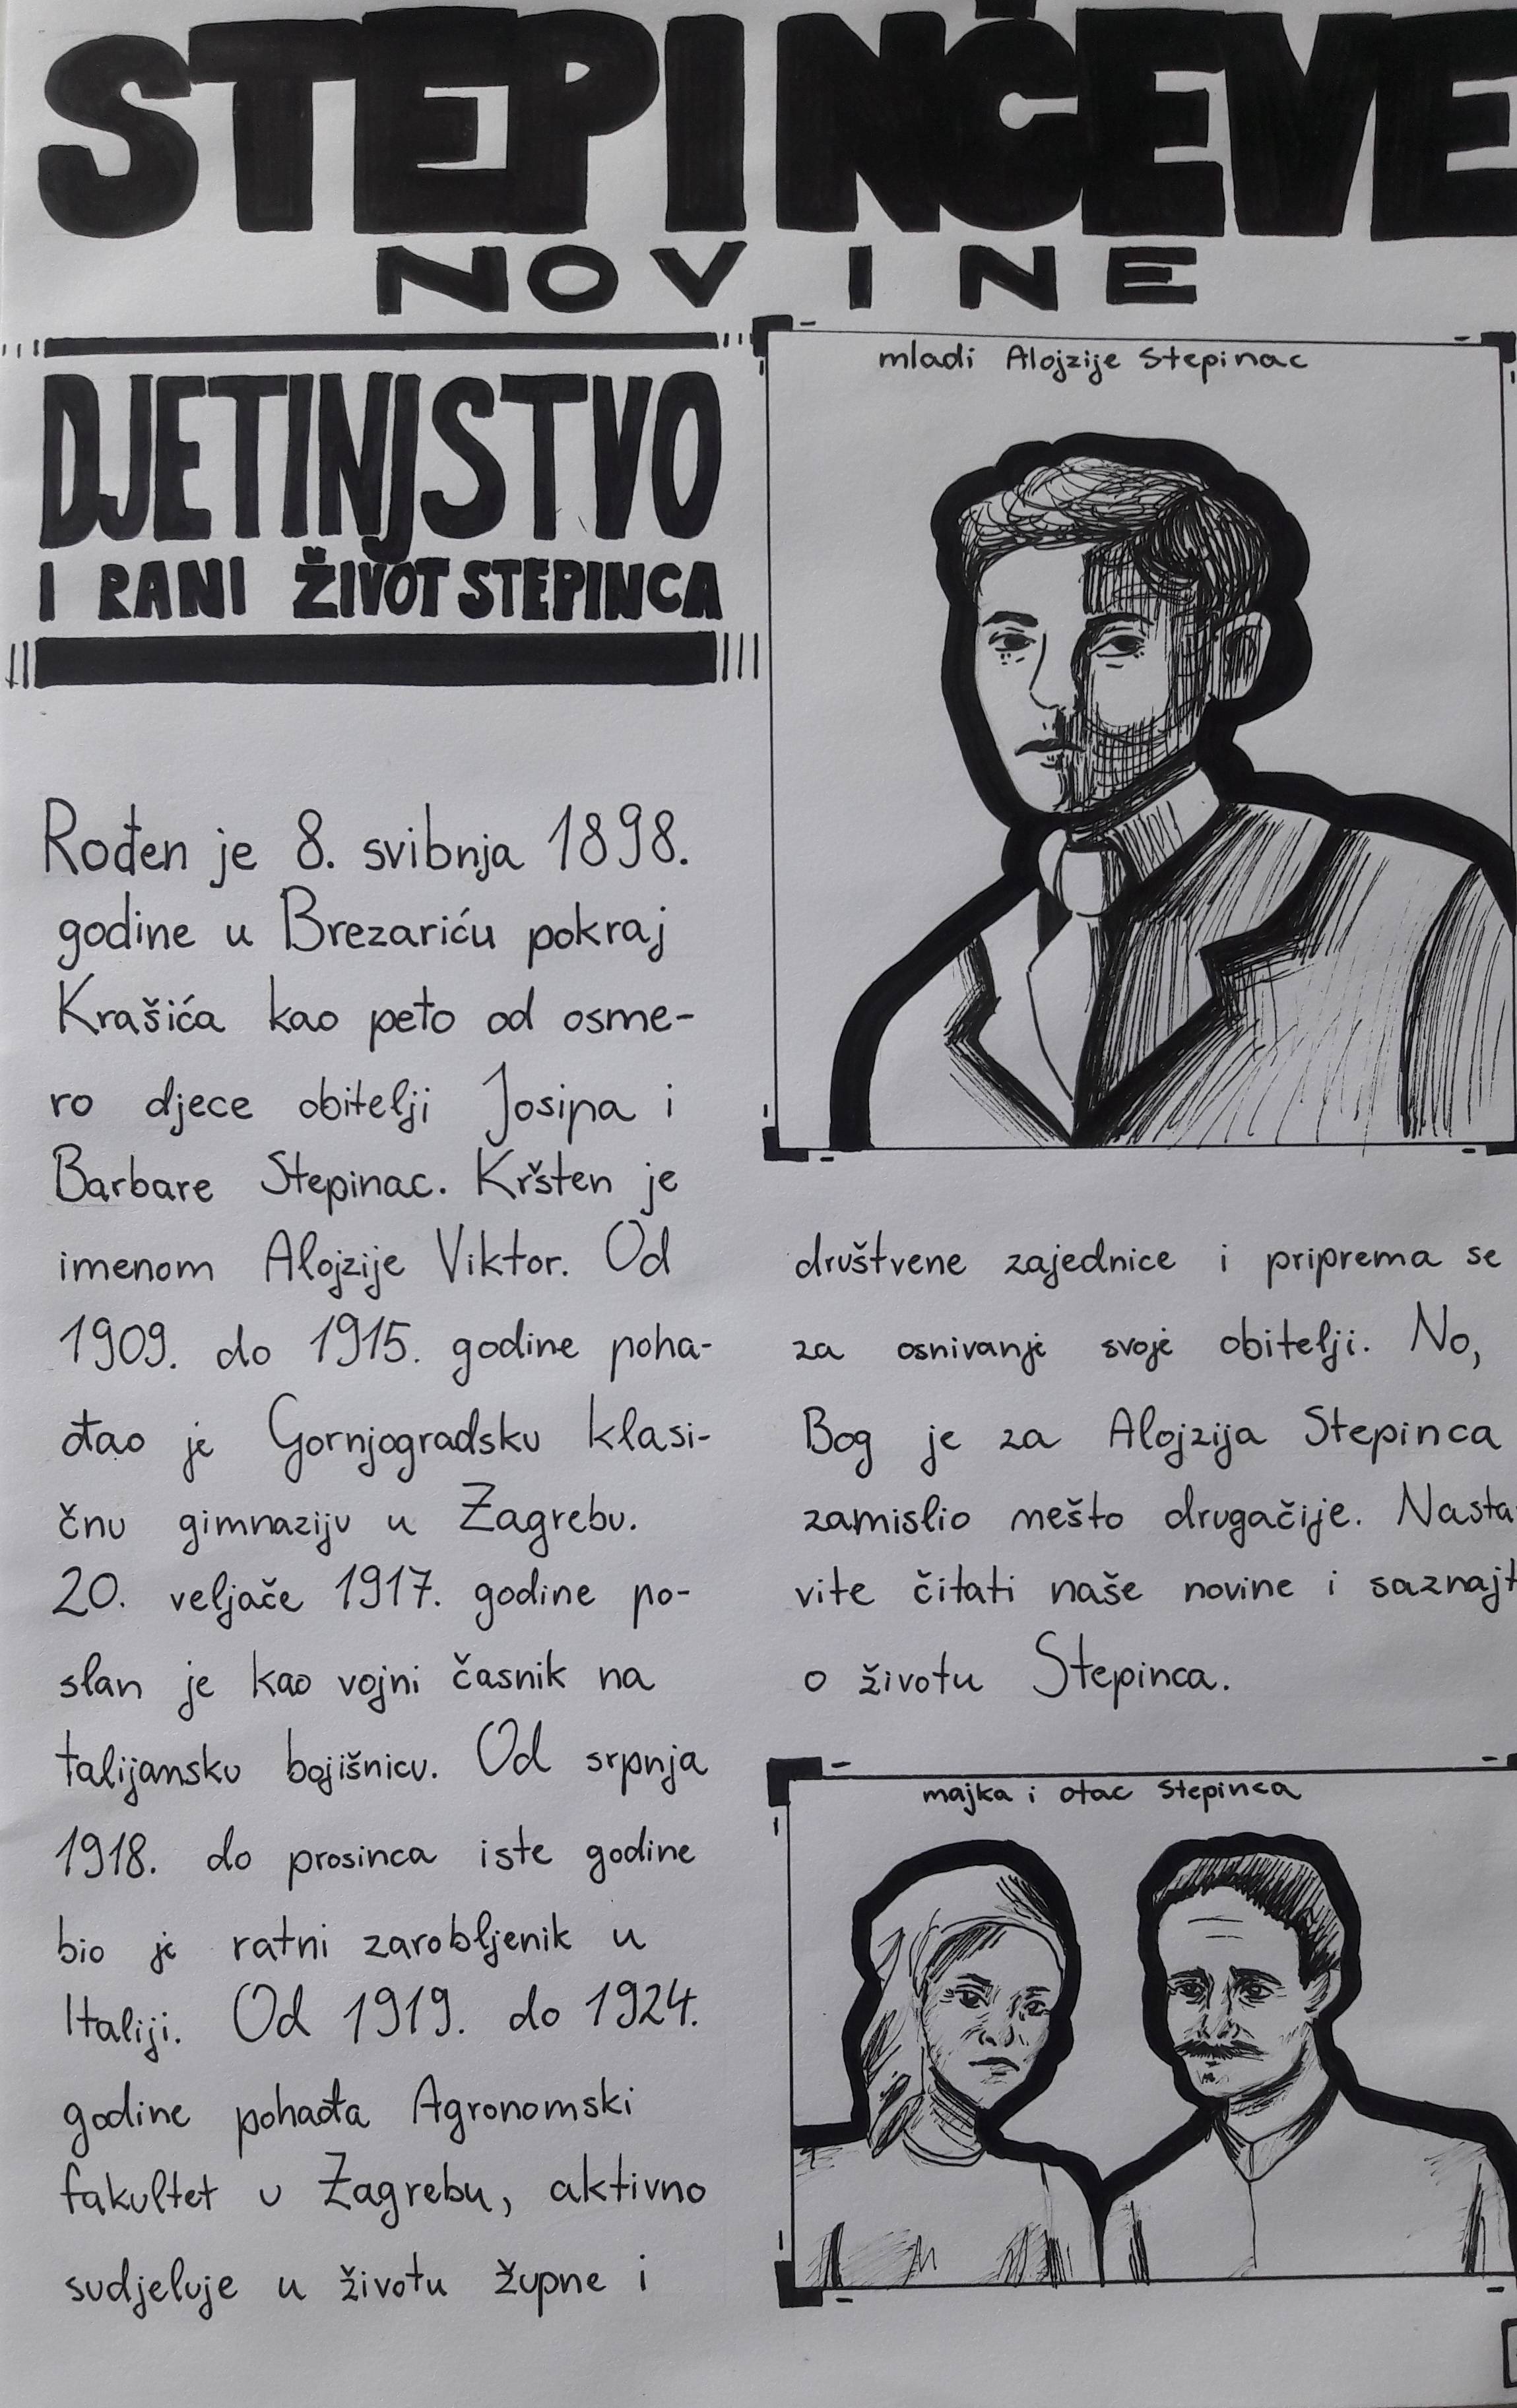 STEPINČEVE
NOVINE
DJETINJSTVO
I RANI ŽIVOT STEPINCA
Rođen je 8. svibnja 1898.
godine u Brezariću pokraj
Krašića kao peto od osme-
ro djece obitelji Josipa i
Barbare Stepinac. Kršten je
imenom Alojzije Viktor. Od
1909. do 1915. godine poha-
đao je Gornjogradsku klasi-
čnu gimnaziju u Zagrebu.
20. veljače 1917. godine po-
slan je kao vojni časnik na
talijansku bojišnicu. Od srpnja
1918. do prosinca iste godine
bio je ratni zarobljenik u
Italiji. Od 1919. do 1924.
godine pohađa Agronomski
fakultet u Zagrebu, aktivno
sudjeluje u životu župne i
mladi Alojzije Stepinac
društvene zajednice i priprema se
za osnivanje svoje obitelji. No,
Bog je za Alojzija Stepinca
zamislio mešto drugačije. Nasta
vite čitati naše novine i saznajt
o životu Stepinca.
majka i otac Stepinca